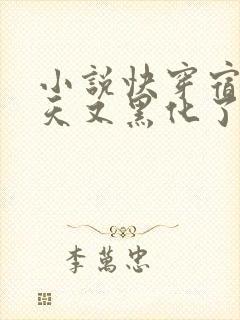 小說快穿宿
天又黑化了
李萬忠